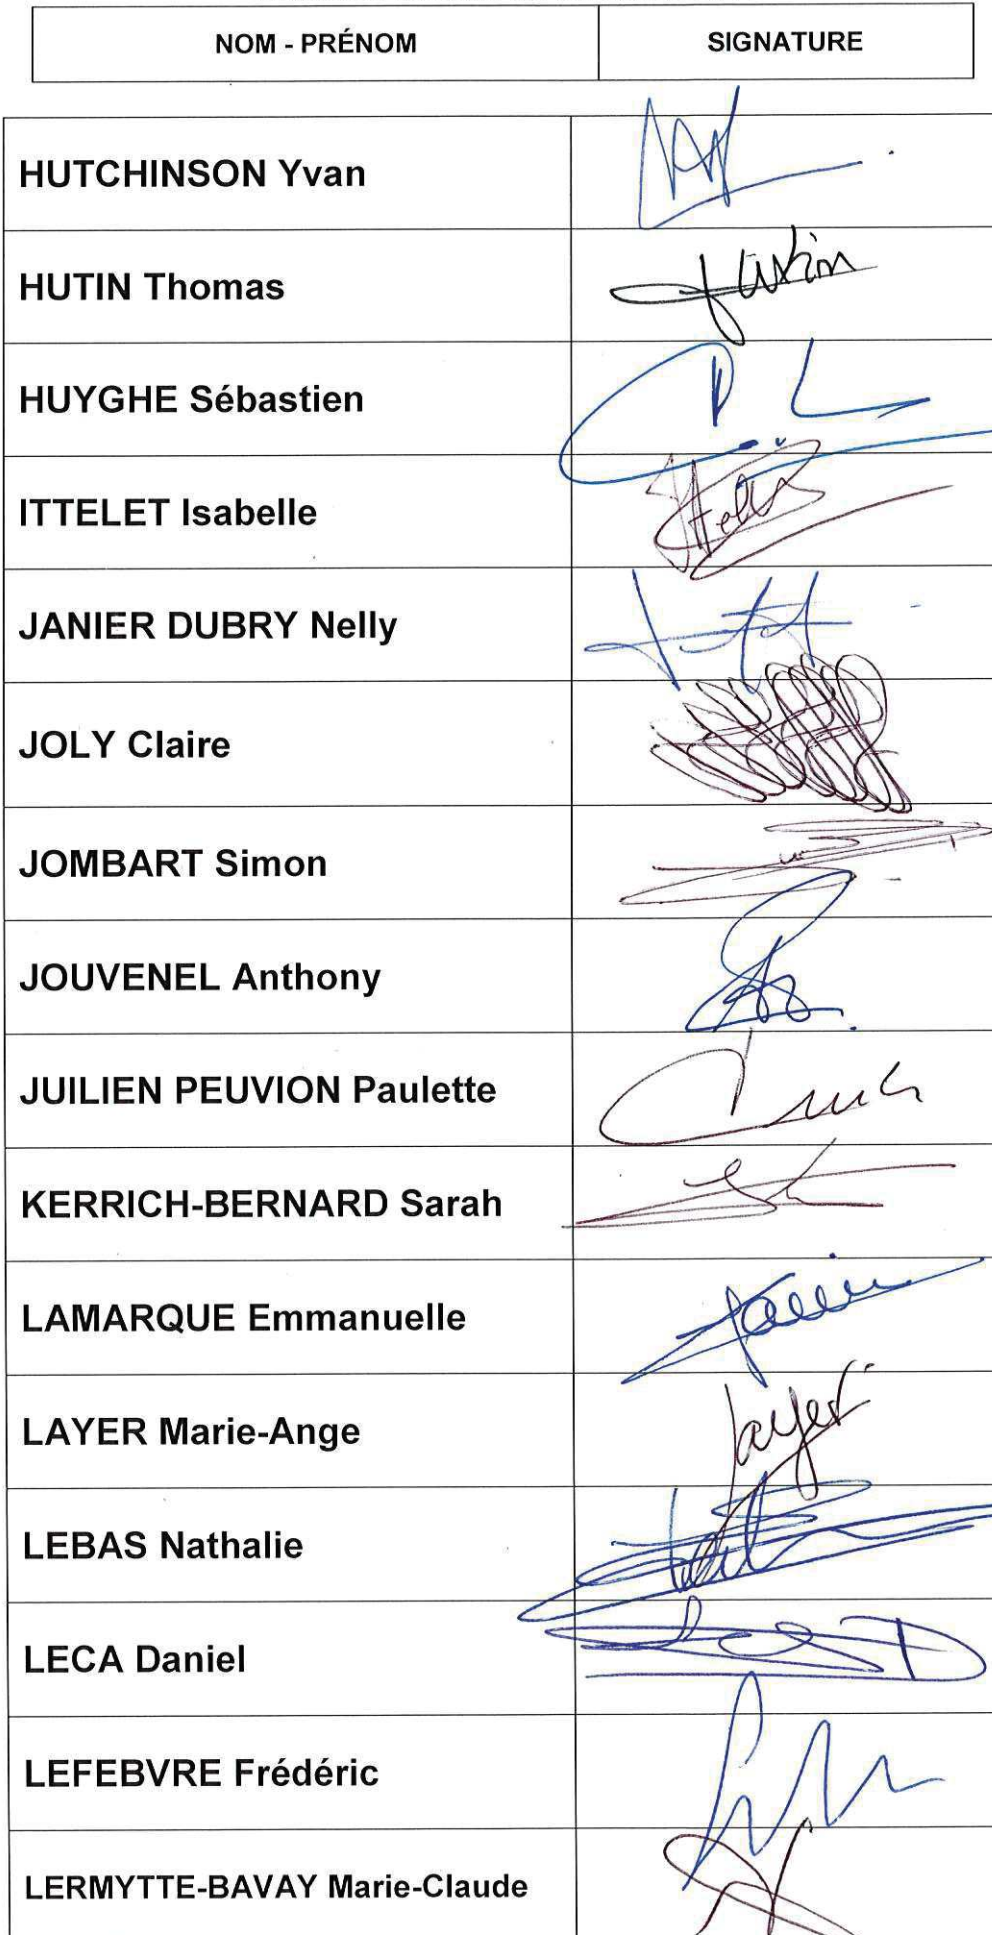 NOM - PRÉNOM SIGNATURE
HUTCHINSON Yvan
HUTIN Thomas
HUYGHE Sébastien
ITTELET Isabelle
JANIER DUBRY Nelly
JOLY Claire
JOMBART Simon
JOUVENEL Anthony
JUILIEN PEUVION Paulette
KERRICH-BERNARD Sarah
LAMARQUE Emmanuelle
LAYER Marie-Ange Layer
LEBAS Nathalie
LECA Daniel
LEFEBVRE Frédéric
LERMYTTE-BAVAY Marie-Claude